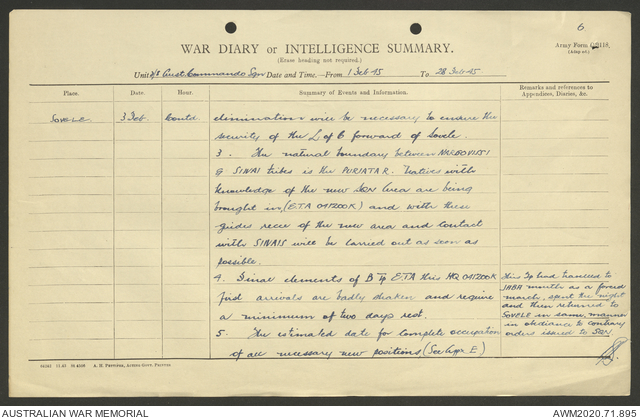 6
WAR DIARY or INTELLIGENCE SUMMARY.
(Erase heading not required.)
Army Form C2118.
(Adapted)
Unit 2/8 Aust. Commando Sqn Date and Time—From 1 Feb 45 To 28 Feb 45.
Place.
Date.
Hour.
Summary of Events and Information.
Remarks and references to
Appendices, Diaries, &c.
SOVELE
3 Feb
Contd.
elimination will be necessary to ensure the
security of the L of C forward of Sovele.
3. The natural boundary between NAGOVISSI
& SINAI tribes is the PURIATA R. Natives with
knowledge of the new SQN area are being
brought in, (E.T.A 041200K) and with these
guides recce of the new area and contact
with SINAIS will be carried out as soon as
possible.
4. Final elements of B Tp E.T.A this HQ 041200K
first arrivals are badly shaken and require
a minimum of two days rest.
5. The estimated date for complete occupation
of all necessary new positions (See Appx E)
This Tp had travelled to
IABA mouth as a forced
march, spent the night
and then returned to
SOVELE in same manner
in obedience to contrary
orders issued to SQN.
A. H. Pettifer, Acting Govt. Printer
AUSTRALIAN WAR MEMORIAL
AWM2020.71.895